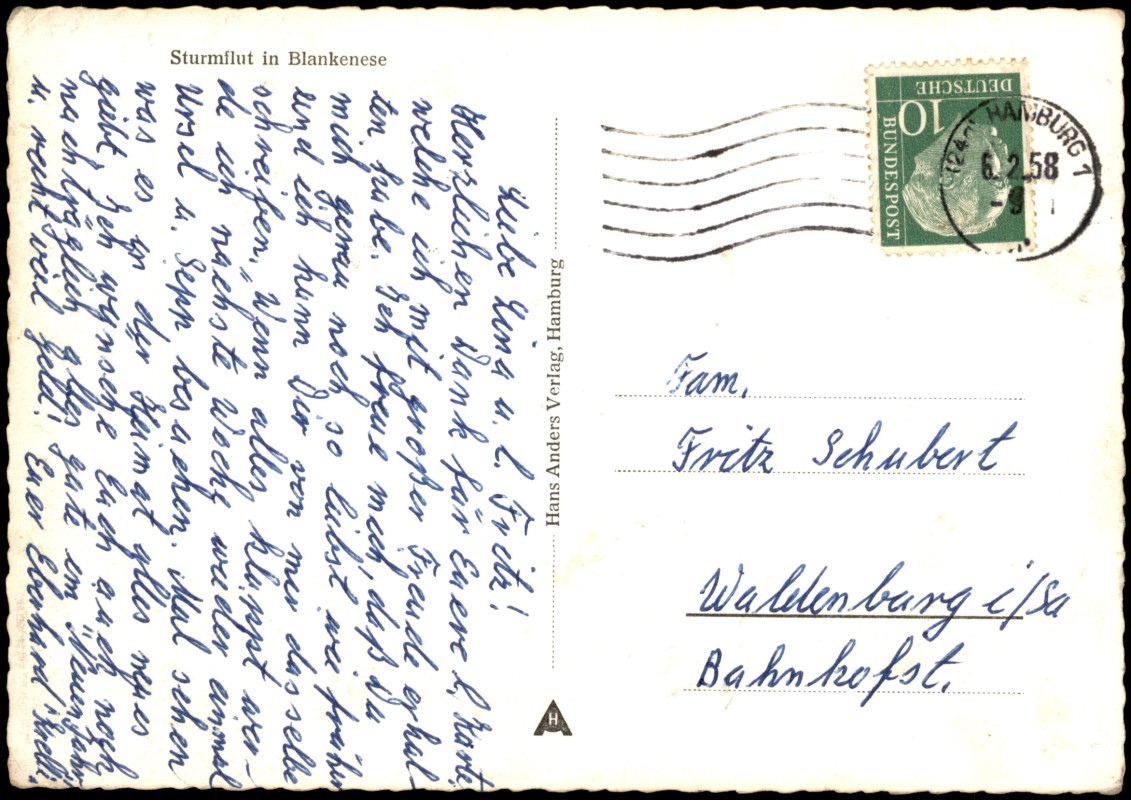 Sturmflut in Blankenese
Liebe Lina u. l. Fritz!
Herzlichen Dank für Euere l. Karte
welche ich mit großer Freude erhal-
ten habe. Ich freue mich, daß Du
mich genau noch so liebst wie früher
und ich kann Dir von mir dasselbe
schreiben. Wenn alles klappt wer-
de ich nächste Woche wieder einmal
Ursel u. Sepp besuchen. Mal sehen
was es in der Heimat alles neues
gibt. Ich wünsche Euch auch noch
nachträglich alles gute im "Neuen Jahr"
u. recht viel Geld! Euer Eberhard
Hans Anders Verlag, Hamburg
H
DEUTSCHE
BUNDESPOST
10
HAMBURG 1
6.2.58
- 9
Fam.
Fritz Schubert
Waldenburg i/Sa
Bahnhofst.